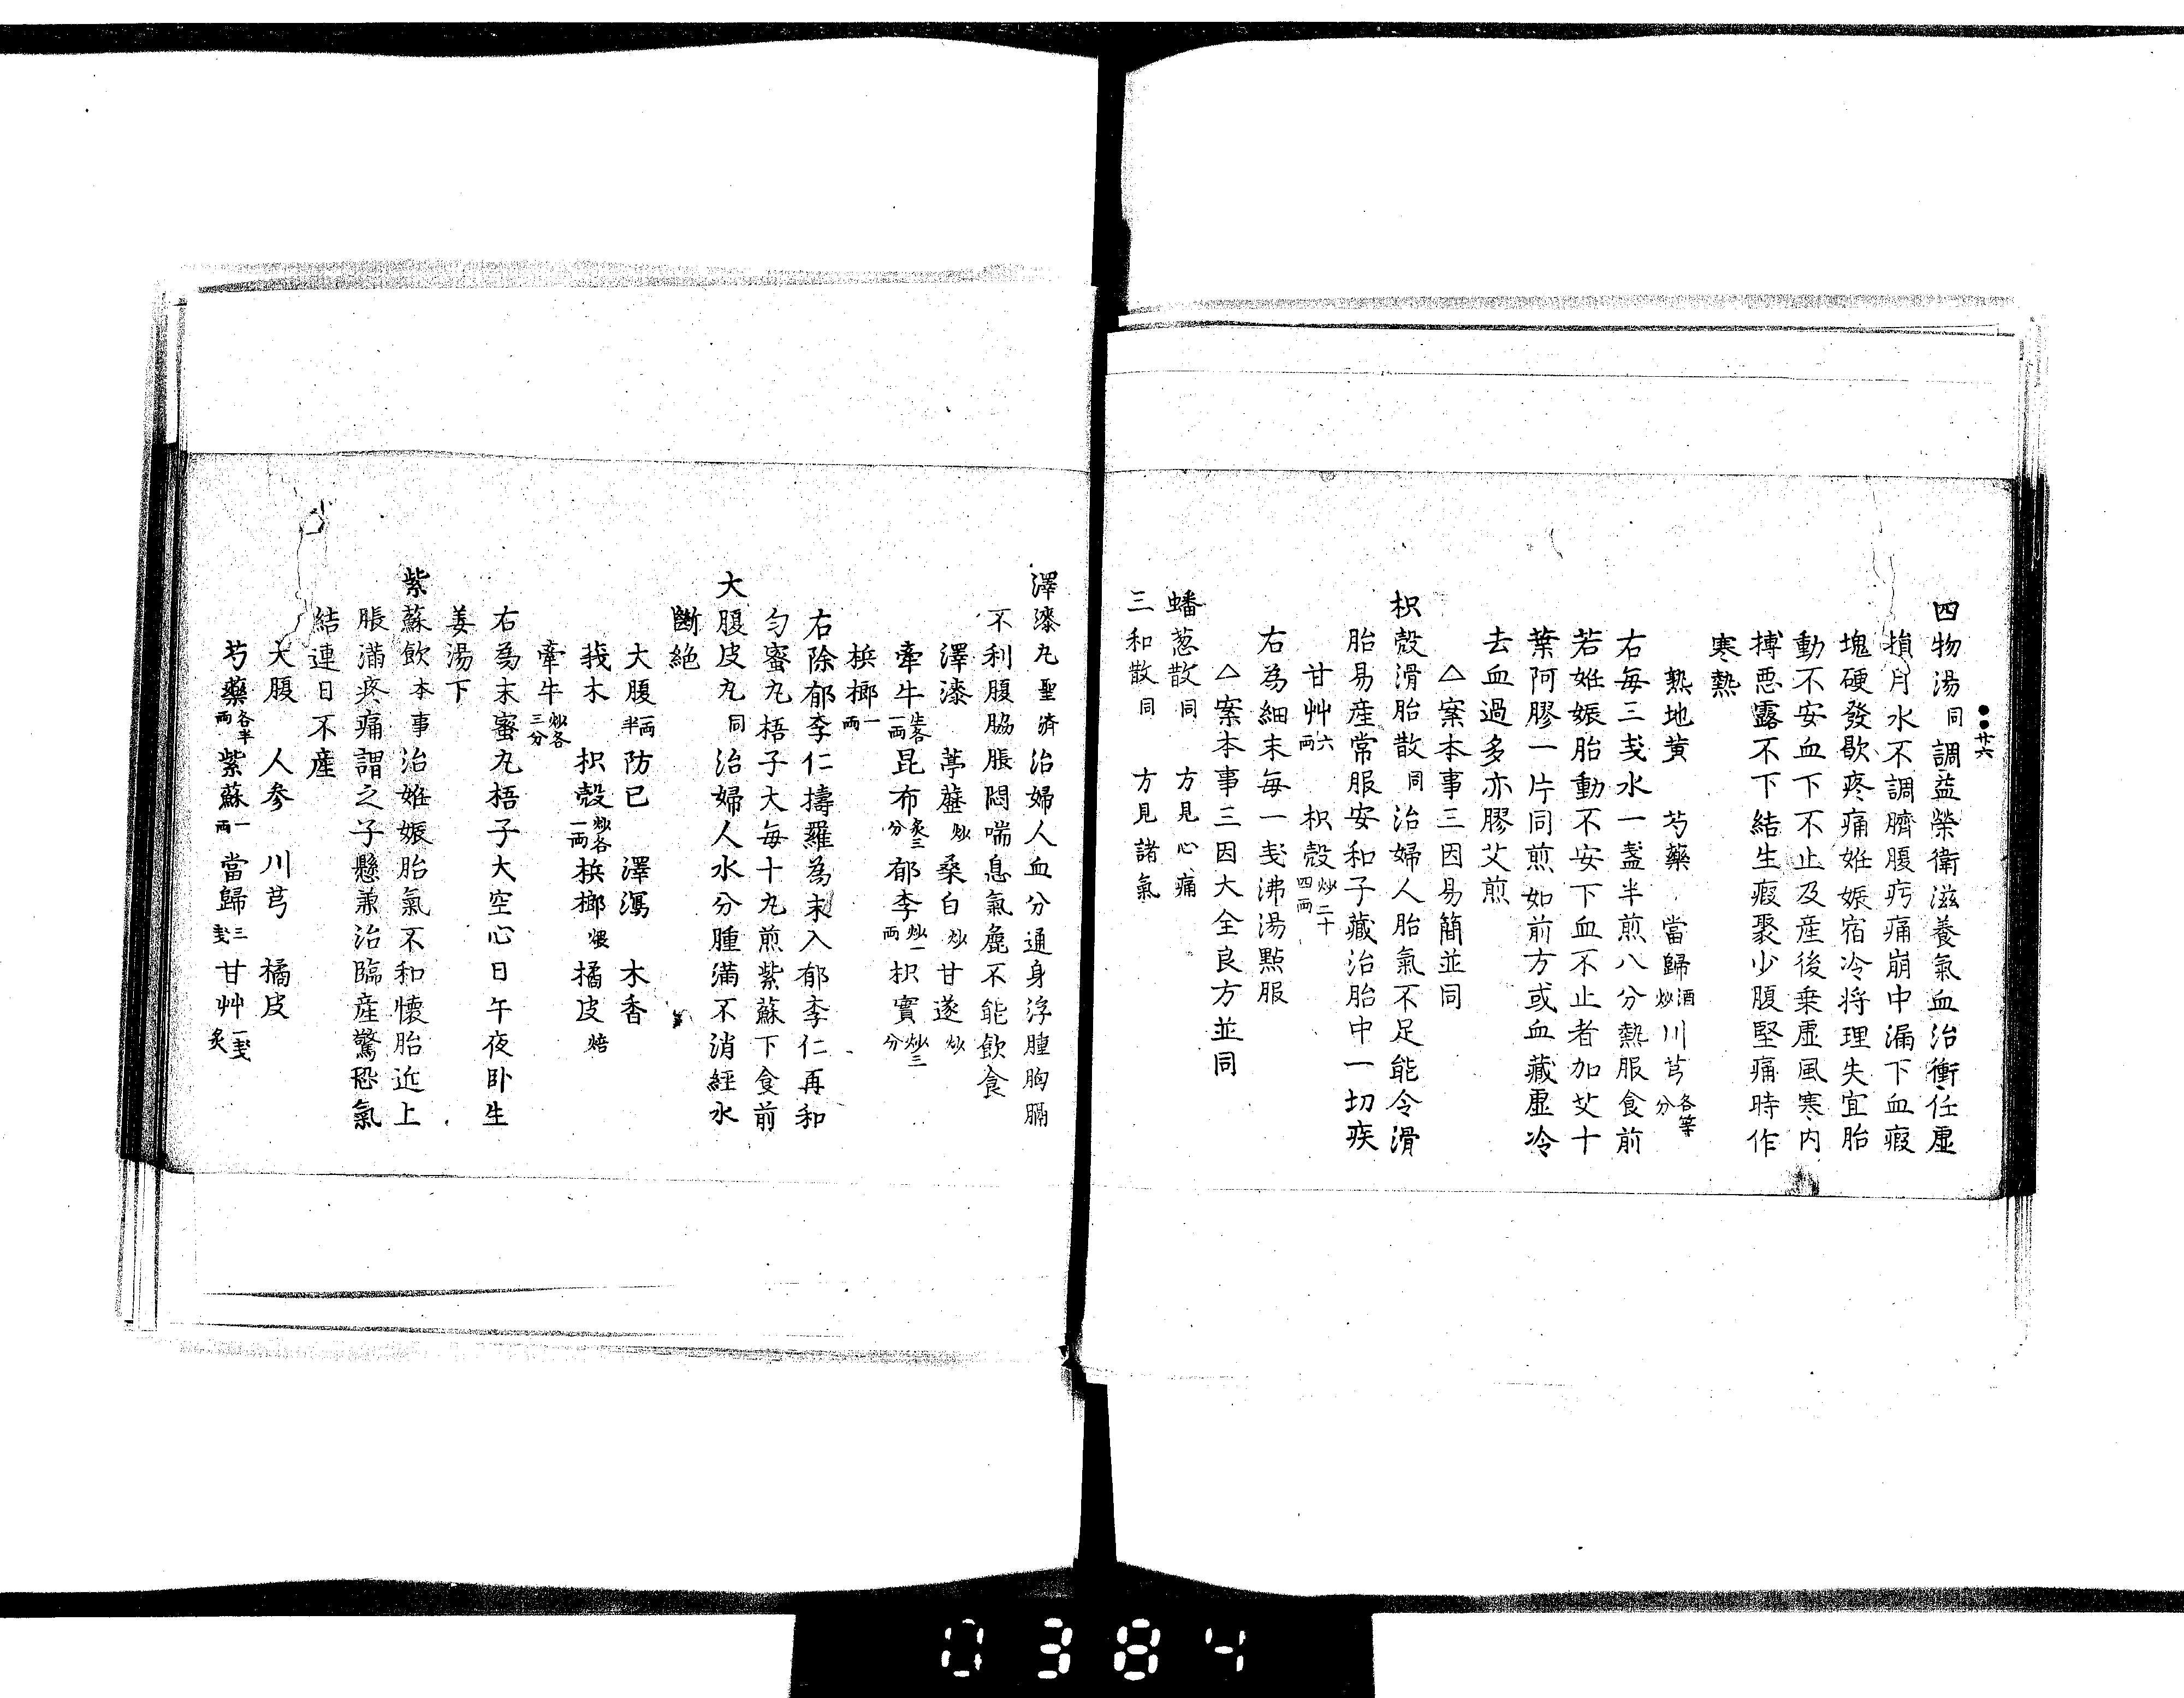 廿六
四物湯同調益榮衛滋養氣血治衝任虛
損月水不調臍腹㽲痛崩中漏下血瘕
塊硬發歇疼痛姙娠宿冷将理失宜胎
動不安血下不止及産後乗虛風寒内
搏惡露不下結生瘕聚少腹堅痛時作
寒熱
熟地黄 芍藥 當歸酒炒 川芎各等分
右每三戔水一盞半煎八分熱服食前
若姙娠胎動不安下血不止者加艾十
葉阿膠一片同煎如前方或血藏虛冷
去血過多亦膠艾煎
△案本事三因易簡並同
枳殻滑胎散同治婦人胎氣不足能令滑
胎易産常服安和子藏治胎中一切疾
甘艸六兩 枳殻炒二十四兩
右為細末每一戔沸湯點服
△案本事三因大全良方並同
蟠葱散同 方見心痛
三和散同 方見諸氣
澤漆丸聖濟治婦人血分通身浮腫胸膈
不利腹脇脹悶喘息氣麁不能飲食
澤漆 葶藶炒 桑白炒 甘遂炒
牽牛生各一兩 昆布炙三分 郁李炒一兩 枳實炒三分
檳榔一兩
右除郁李仁擣羅為末入郁李仁再和
勻蜜丸梧子大每十丸煎紫蘇下食前
大腹皮丸同治婦人水分腫滿不消經水
斷絶
大腹一兩半 防已 澤瀉 木香
莪木 枳殻炒各一兩 檳榔煨 橘皮焙
牽牛炒各三分
右為末蜜丸梧子大空心日午夜卧生
姜湯下
紫蘇飲本事治姙娠胎氣不和懷胎近上
脹滿疼痛謂之子懸兼治臨産驚恐氣
結連日不産
大腹 人参 川芎 橘皮
芍藥各半兩 紫蘇一兩 當歸三戔 甘艸一戔炙
0384